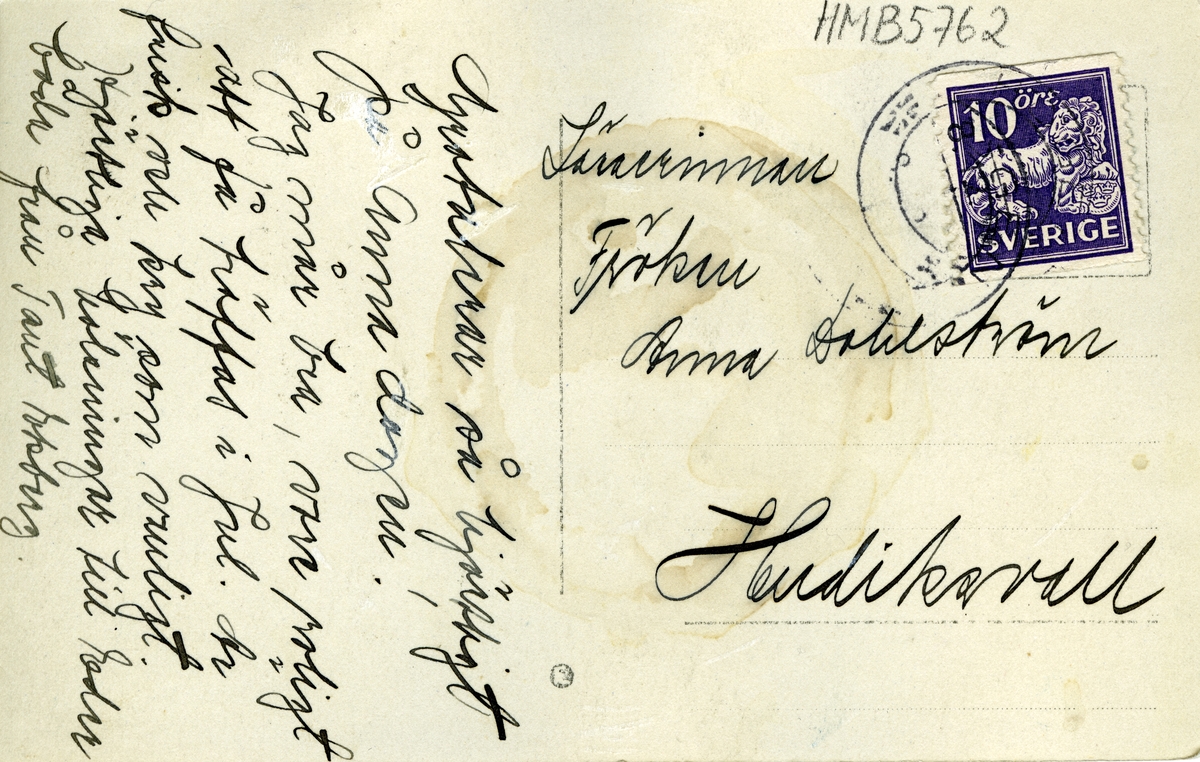 HMB5762
10 öre
SVERIGE
Lärarinnan
Fröken
Anna Dahlström
Hudiksvall
Gratulerar så hjärtligt
på Anna dagen.
Jag mår bra, vore roligt
att få träffas i Jul. Är
frisk och kry som vanligt.
Hjärtliga hälsningar till Eder
båda från Tant